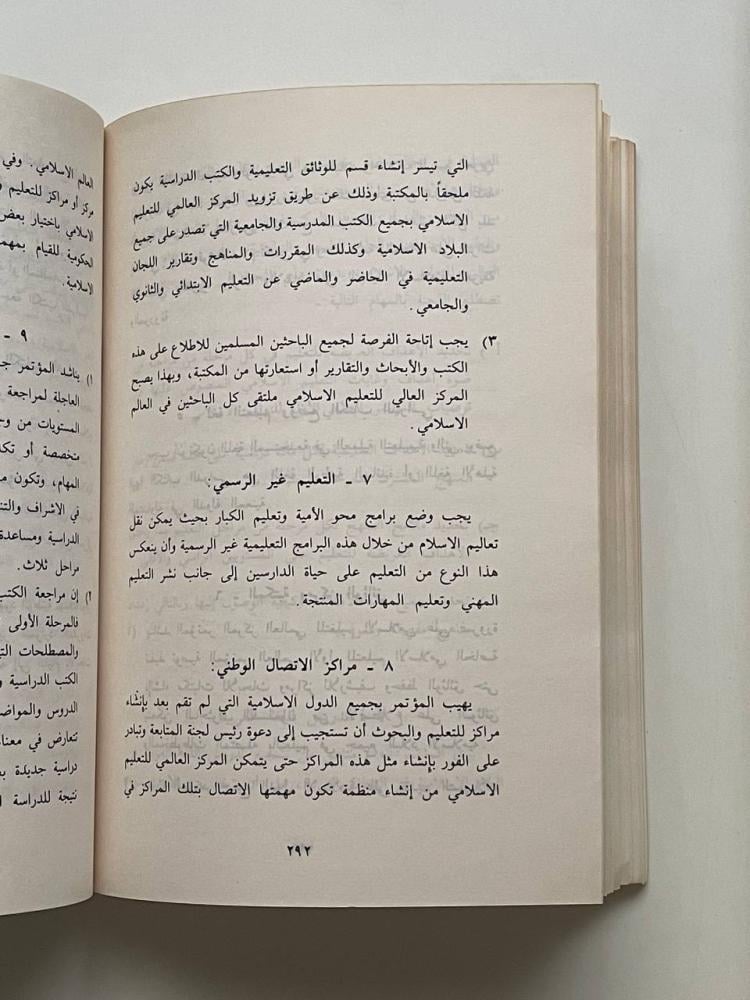 التي تيسر إنشاء قسم للوثائق التعليمية والكتب الدراسية يكون
ملحقاً بالمكتبة وذلك عن طريق تزويد المركز العالمي للتعليم
الاسلامي بجميع الكتب المدرسية والجامعية التي تصدر على جميع
البلاد الاسلامية وكذلك المقررات والمناهج وتقارير اللجان
التعليمية في الحاضر والماضي عن التعليم الابتدائي والثانوي
والجامعي .
٣) يجب إتاحة الفرصة لجميع الباحثين المسلمين للاطلاع على هذه
الكتب والأبحاث والتقارير أو استعارتها من المكتبة، وبهذا يصبح
المركز العالي للتعليم الاسلامي ملتقى كل الباحثين في العالم
الاسلامي .
٧ ـ التعليم غير الرسمي:
يجب وضع برامج محو الأمية وتعليم الكبار بحيث يمكن نقل
تعاليم الاسلام من خلال هذه البرامج التعليمية غير الرسمية وأن ينعكس
هذا النوع من التعليم على حياة الدارسين إلى جانب نشر التعليم
المهني وتعليم المهارات المنتجة.
٨ ـ مراكز الاتصال الوطني:
يهيب المؤتمر بجميع الدول الاسلامية التي لم تقم بعد بإنشاء
مراكز للتعليم والبحوث أن تستجيب إلى دعوة رئيس لجنة المتابعة وتبادر
على الفور بإنشاء مثل هذه المراكز حتى يتمكن المركز العالمي للتعليم
الاسلامي من إنشاء منظمة تكون مهمتها الاتصال بتلك المراكز في
٢٩٢
العالم الاسلامي . وفي
مركز أو مراكز للتعليم
الاسلامي باختيار بعض
الحكومية للقيام بمهم
الاسلامية.
٩ ـ
١) يناشد المؤتمر
العاجلة لمراجعة
المستويات من
متخصصة أو
المهام، وتكون
في الاشراف
الدراسية ومساعدة
مراحل ثلاث.
٢) إن مراجعة الكتب
فالمرحلة الأولى
والمصطلحات
الكتب الدراسية
الدروس
تتعارض في
دراسية جديدة
نتيجة للدراسة